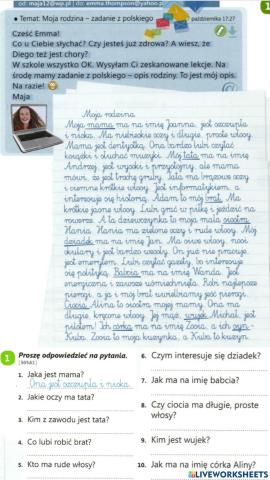 od: maja12@wp.pl | do: emma.thompson@yahoo.p
1
• Temat: Moja rodzina – zadanie z polskiego
października 17:27
Cześć Emma!
Co u Ciebie słychać? Czy jesteś już zdrowa? A wiesz, że
Diego też jest chory?
W szkole wszystko OK. Wysyłam Ci zeskanowane lekcje. Na
środę mamy zadanie z polskiego – opis rodziny. To jest mój opis.
Na razie!
Maja
Moja rodzina
Moja mama ma na imię Joanna, jest szczupła
i niska. Ma niebieskie oczy i długie, proste włosy.
Mama jest dentystką. Ona bardzo lubi czytać
książki i słuchać muzyki. Mój tata ma na imię
Andrzej, jest wysoki i przystojny, ale mama
mówi, że jest trochę gruby. Tata ma brązowe oczy
i ciemne krótkie włosy. Jest informatykiem, a
interesuje się historią. Adam to mój brat. Ma
krótkie jasne włosy. Lubi grać w piłkę i jeździć na
rowerze. A ta dziewczynka to moja mała siostra
Hania. Hania ma zielone oczy i rude włosy. Mój
dziadek ma na imię Jan. Ma siwe włosy, nosi
okulary i jest bardzo wesoły. On już nie pracuje,
jest emerytem. Lubi czytać gazety, bo interesuje
się polityką. Babcia ma na imię Wanda. Jest
energiczna i zawsze uśmiechnięta. Robi najlepsze
pierogi, a ja i mój brat uwielbiamy jeść pierogi.
Ciocia Alina to siostra mojej mamy. Ona ma
długie, kręcone włosy. Jej mąż, wujek Michał, jest
pilotem! Ich córka ma na imię Zosia, a ich syn –
Kuba. Zosia to moja kuzynka, a Kuba to kuzyn.
1 Proszę odpowiedzieć na pytania.
1. Jaka jest mama?
Ona jest szczupła i niska.
2. Jakie oczy ma tata?
3. Kim z zawodu jest tata?
4. Co lubi robić brat?
5. Kto ma rude włosy?
6. Czym interesuje się dziadek?
7. Jak ma na imię babcia?
8. Czy ciocia ma długie, proste
włosy?
9. Kim jest wujek?
10. Jak ma na imię córka Aliny?
LIVEWORKSHEETS